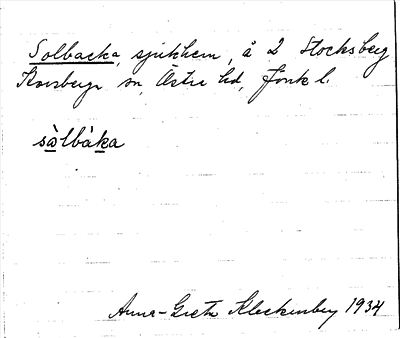 Solbacka, sjukhem, å 2 Stocksberg
Korsberga sn, Östra hd, Jönk l.
sòlbàka
Anna-Greta Kleckenberg 1934